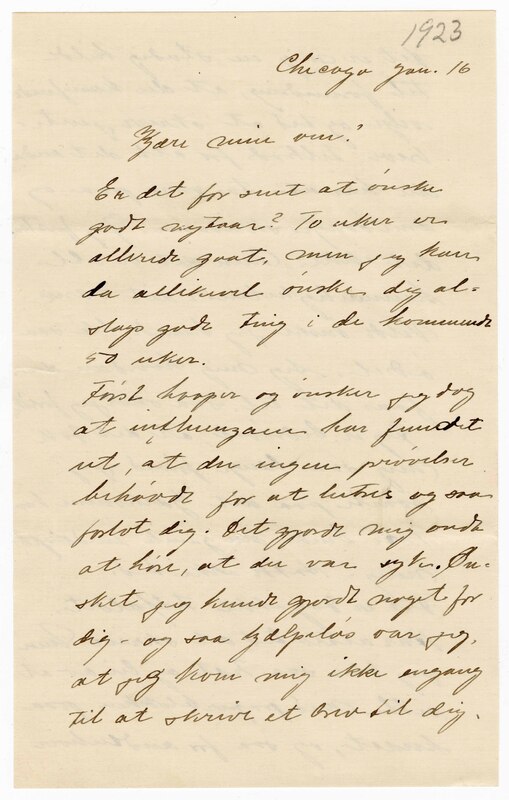 1923
Chicago Jan. 16
Kjære min ven!
Er det for sent at ønske
godt nytaar? To uker er
allerede gaat, men jeg kan
da allikevel ønske dig al-
slags gode ting i de kommende
50 uker.
Først haaper og ønsker jeg dog
at influenzaen har fundet
ut, at du ingen prøvelser
behøvde for at lutres og saa
forlot dig. Det gjorde mig ondt
at høre, at du var syk. Øn-
sket jeg kunde gjordt noget for
dig - og saa hjælpeløs var jeg,
at jeg kom mig ikke engang
til at skrive et brev til dig.